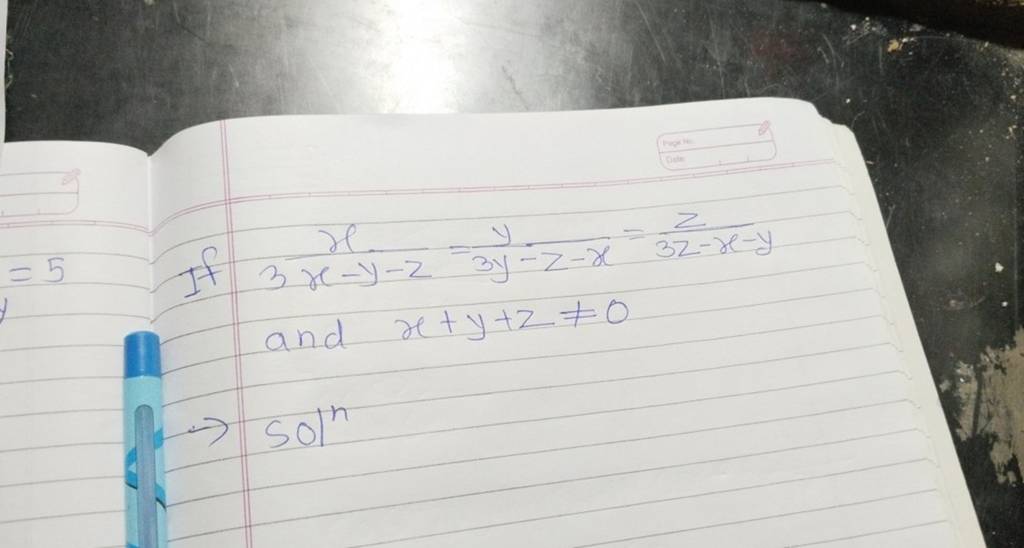 Page No.
Date
= 5
y
If x/(3x-y-z) = y/(3y-z-x) = z/(3z-x-y)
and x+y+z ≠ 0
→ Solⁿ